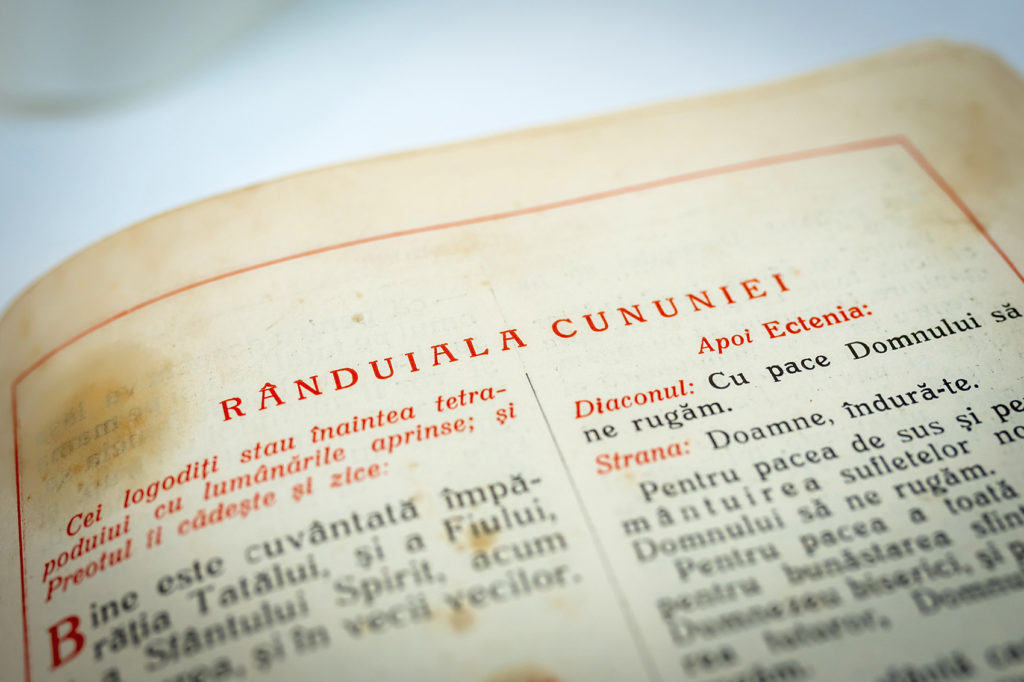 RÂNDUIALA CUNUNIEI
Cei logodiți stau înaintea tetra-
podului cu lumânările aprinse; și
Preotul îi cădește și zice:
Bine este cuvântată împă-
răția Tatălui, și a Fiului,
a Sfântului Spirit, acum
și în vecii vecilor.
Apoi Ectenia:
Diaconul: Cu pace Domnului să
ne rugăm.
Strana: Doamne, îndură-te.
Pentru pacea de sus și
mântuirea sufletelor
Domnului să ne rugăm.
Pentru pacea a toată
pentru bunăstarea
Dumnezeu biserici, și
tuturor, Domnului